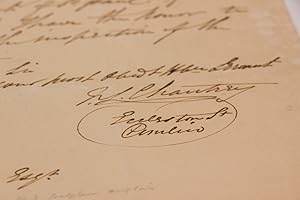 have the honor to
the inspection of the
Sir
your most Obedt Hble Servant
F. L. Chantrey
Eccleston St
Pimlico
Esqr